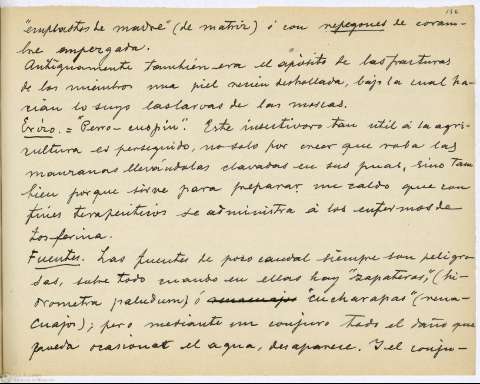 136
"emplastos de madre" (de matriz) ó con repegones de coram-
bre empezgada.
Antiguamente también era el apósito de las fracturas
de los miembros una piel recién desollada, bajo la cual ha-
cían lo suyo las larvas de las moscas.
Erizo.= "Perro-cuspin". Este insectívoro tan util á la agri-
cultura es perseguido, no solo por creer que roba las
manzanas llevándolas clavadas en sus puas, sino tam
bien porque sirve para preparar un caldo que con
fines terapeúticos se administra á los enfermos de
tosferina.
Fuentes. Las fuentes de poco caudal siempre son peligro-
sas, sobre todo cuando en ellas hay "zapateras", (hi-
drometra paludum) ó renacuajos "cucharapas" (rena-
cuajos); pero, mediante un conjuro todo el daño que
pueda ocasionar el agua, desaparece. Y el conju-